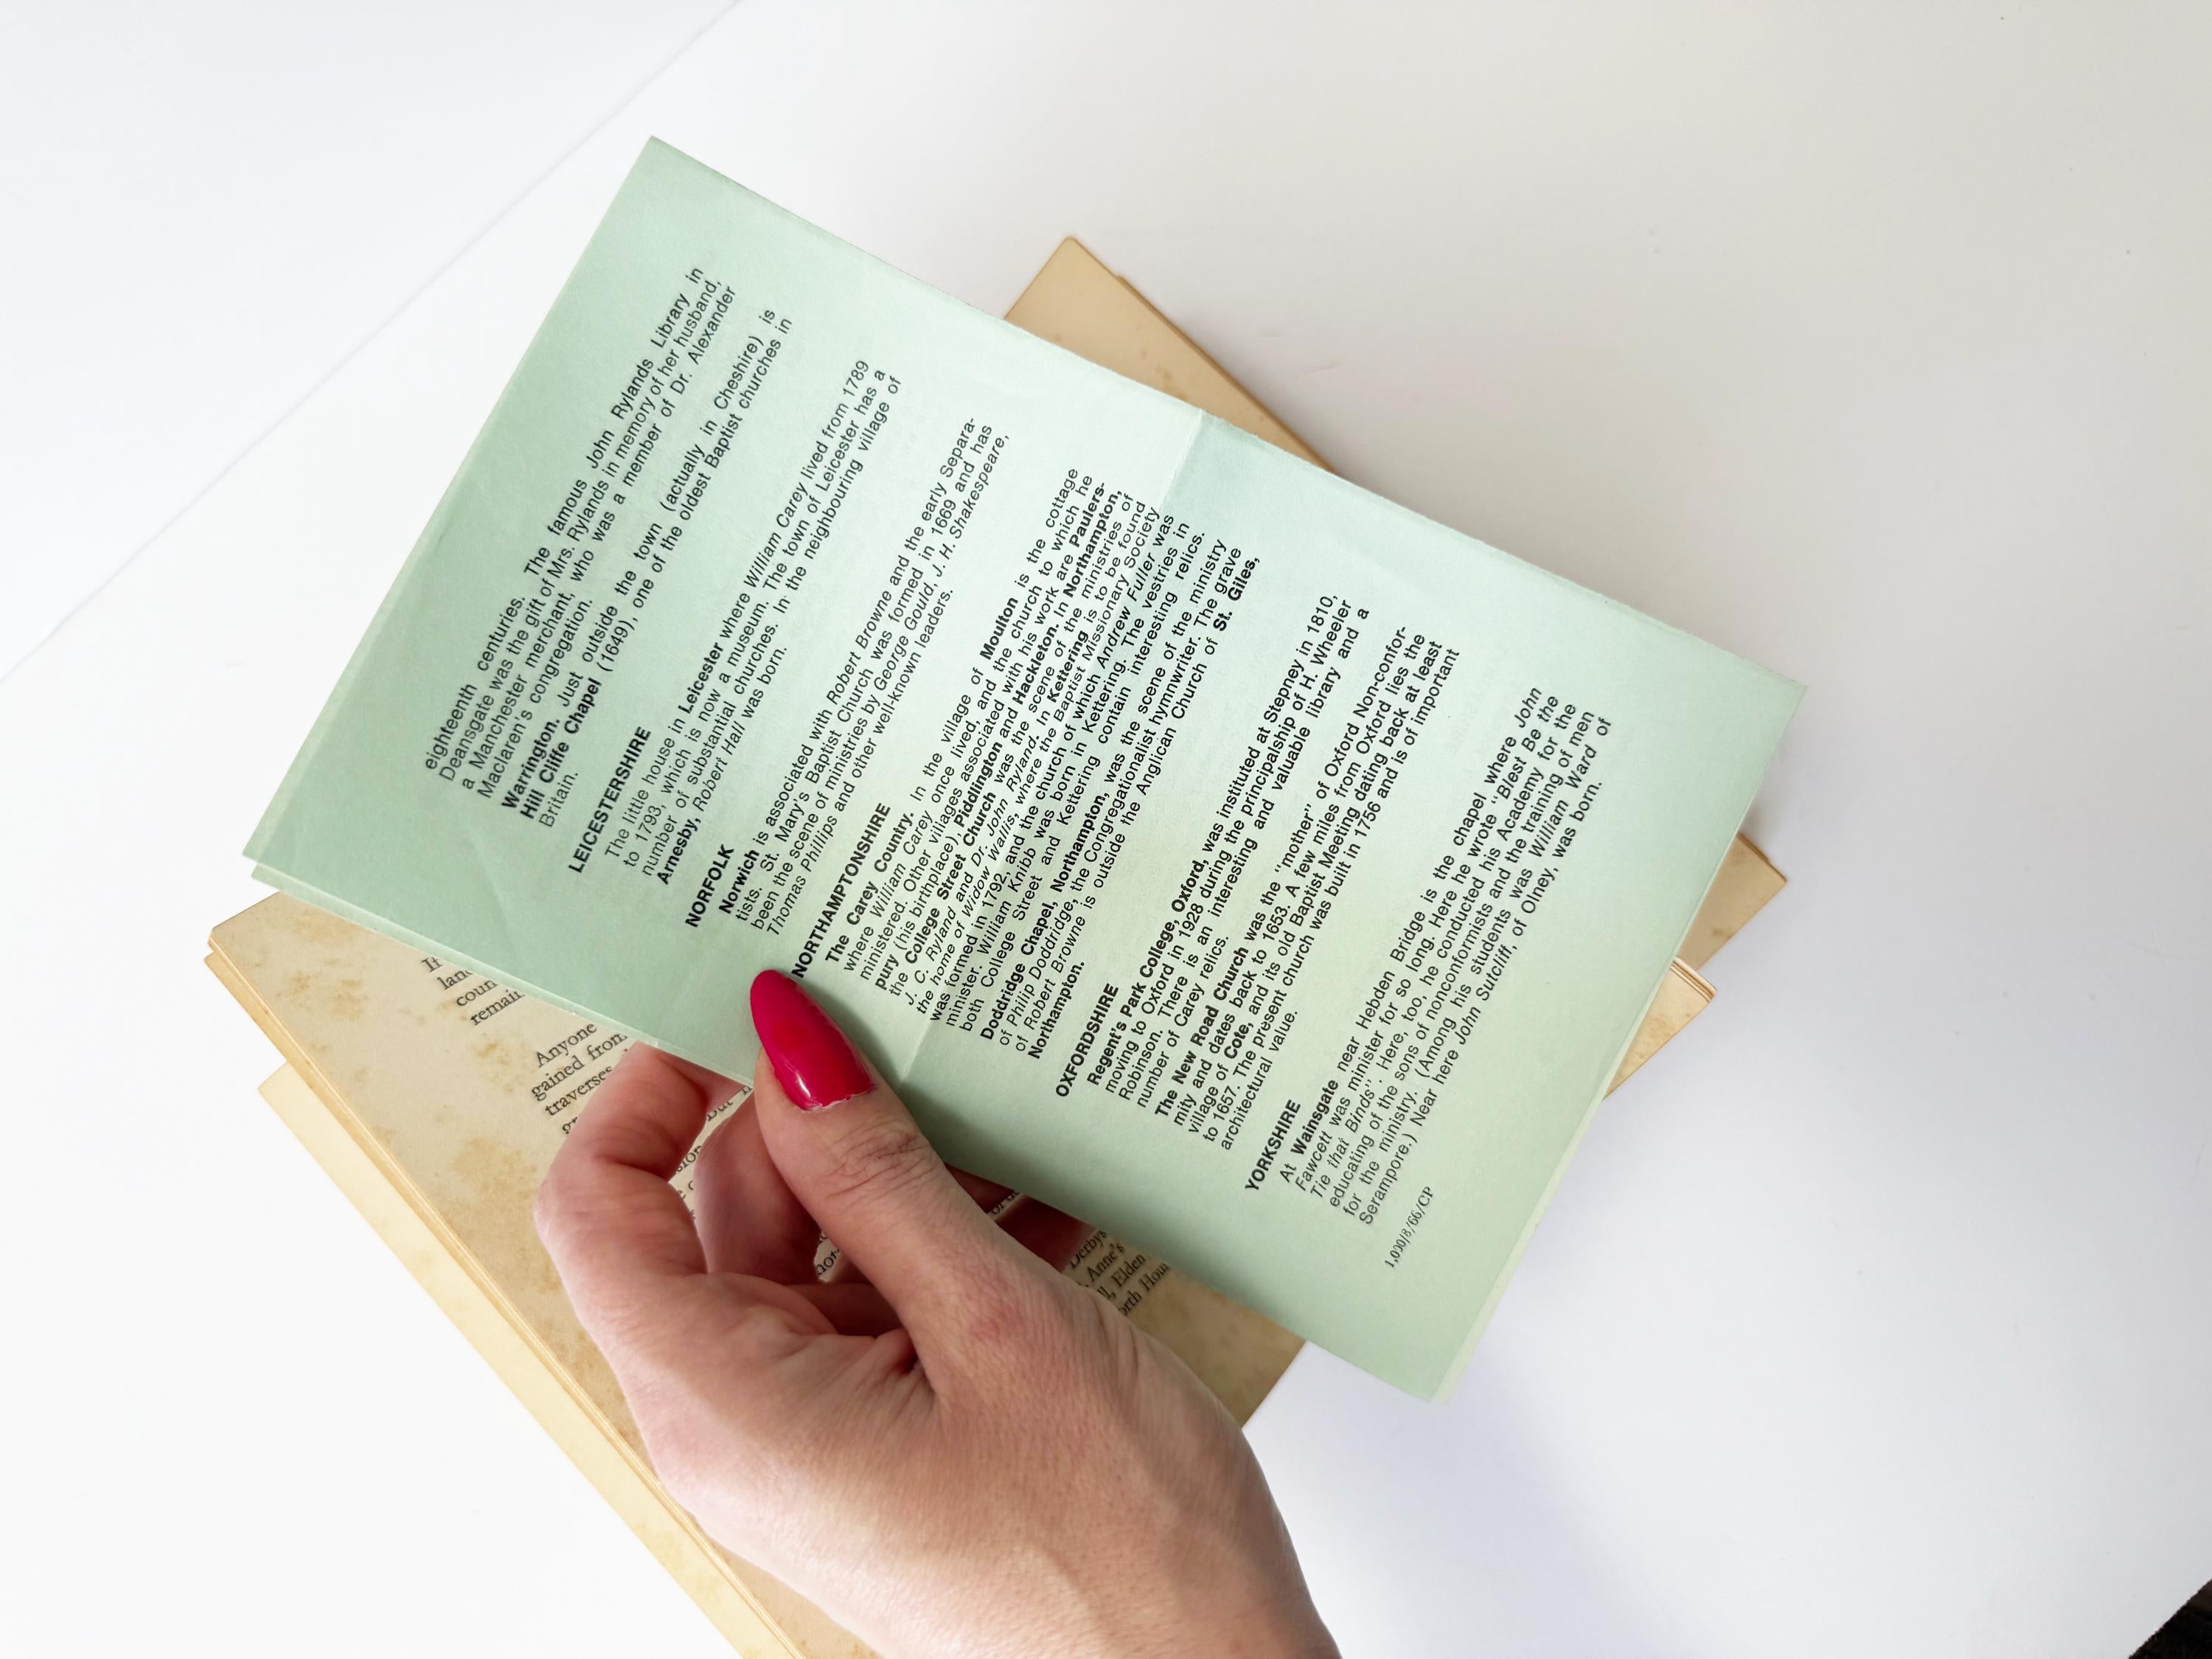 eighteenth centuries. The famous John Rylands Library in
Deansgate was the gift of Mrs. Rylands in memory of her husband,
a Manchester merchant, who was a member of Dr. Alexander
Maclaren's congregation.
Warrington. Just outside the town (actually in Cheshire) is
Hill Cliffe Chapel (1649), one of the oldest Baptist churches in
Britain.
LEICESTERSHIRE
The little house in Leicester where William Carey lived from 1789
to 1793, which is now a museum. The town of Leicester has a
number of substantial churches. In the neighbouring village of
Arnesby, Robert Hall was born.
NORFOLK
Norwich is associated with Robert Browne and the early Separa-
tists. St. Mary's Baptist Church was formed in 1669 and has
been the scene of ministries by George Gould, J. H. Shakespeare,
Thomas Phillips and other well-known leaders.
NORTHAMPTONSHIRE
The Carey Country. In the village of Moulton is the cottage
where William Carey once lived, and the church to which he
ministered. Other villages associated with his work are Paulers-
pury (his birthplace), Piddington and Hackleton. In Northampton,
the College Street Church was the scene of the ministries of
J. C. Ryland and Dr. John Ryland. In Kettering is to be found
the home of Widow Wallis, where the Baptist Missionary Society
was formed in 1792, and the church of which Andrew Fuller was
minister. William Knibb was born in Kettering. The vestries in
both College Street and Kettering contain interesting relics.
Doddridge Chapel, Northampton, was the scene of the ministry
of Philip Doddridge, the Congregationalist hymnwriter. The grave
of Robert Browne is outside the Anglican Church of St. Giles,
Northampton.
OXFORDSHIRE
Regent's Park College, Oxford, was instituted at Stepney in 1810,
moving to Oxford in 1928 during the principalship of H. Wheeler
Robinson. There is an interesting and valuable library and a
number of Carey relics.
The New Road Church was the "mother" of Oxford Non-confor-
mity and dates back to 1653. A few miles from Oxford lies the
village of Cote, and its old Baptist Meeting dating back at least
to 1657. The present church was built in 1756 and is of important
architectural value.
YORKSHIRE
At Wainsgate near Hebden Bridge is the chapel where John
Fawcett was minister for so long. Here he wrote "Blest Be the
Tie that Binds". Here, too, he conducted his Academy for the
educating of the sons of nonconformists and the training of men
for the ministry. (Among his students was William Ward of
Serampore.) Near here John Sutcliff, of Olney, was born.
1,000/8/66/CP
It
coun
remain
Anyone
gained from
traverses
Derbys
Anne's
Elden